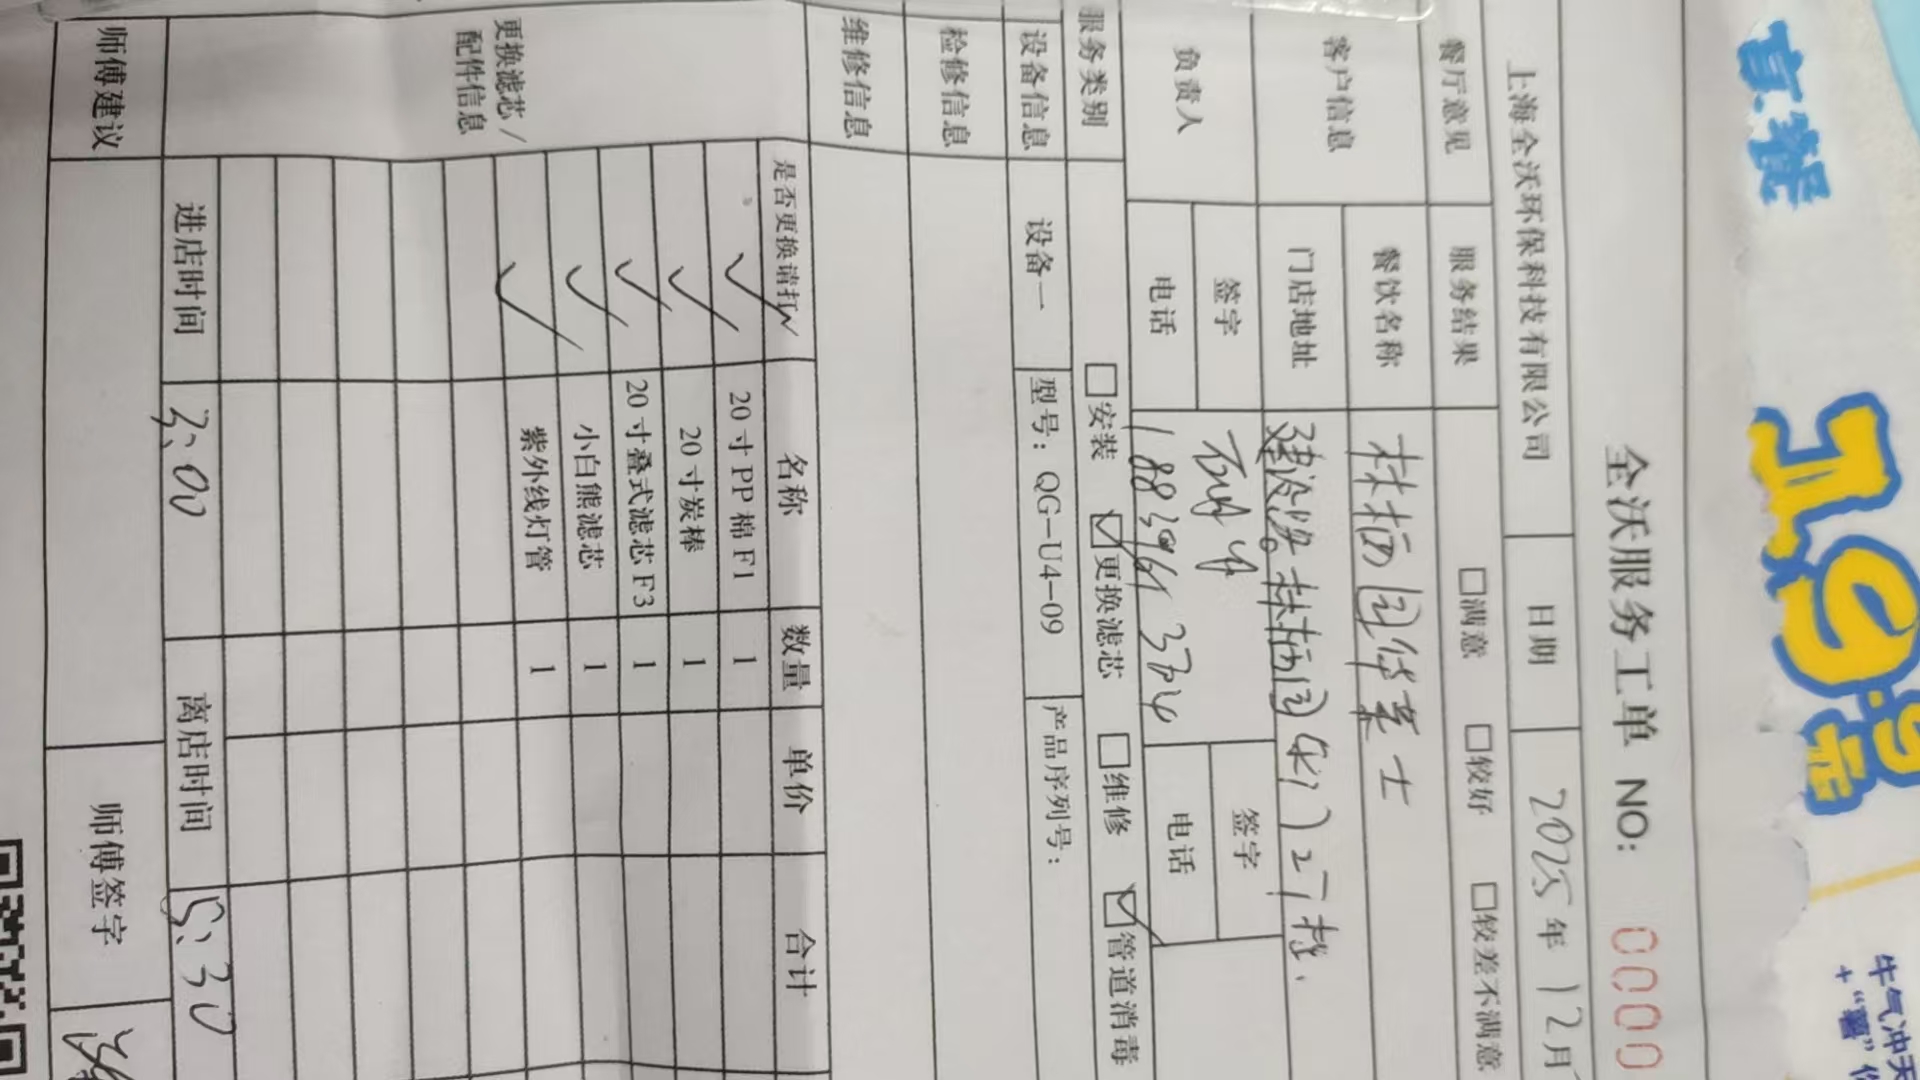 全沃服务工单 NO: 0000
上海全沃环保科技有限公司 日期 2025年12月
餐厅意见 服务结果 □满意 □较好 □较差不满意
客户信息 餐饮名称 林栖园华莱士
门店地址 林栖园 27栋
负责人 签字 签字
电话 电话
服务类别 □安装 ☑更换滤芯 □维修 ☑管道消毒
设备信息 设备一 型号：QG-U4-09 产品序列号：
检修信息
维修信息
更换滤芯/配件信息 是否更换请打√ 名称 数量 单价 合计
✓ 20寸PP棉F1 1
✓ 20寸炭棒 1
✓ 20寸叠式滤芯F3 1
✓ 小白熊滤芯 1
✓ 紫外线灯管 1
进店时间 3:00 离店时间 5:30
师傅建议 师傅签字
19.9元
牛气冲天
+“薯”